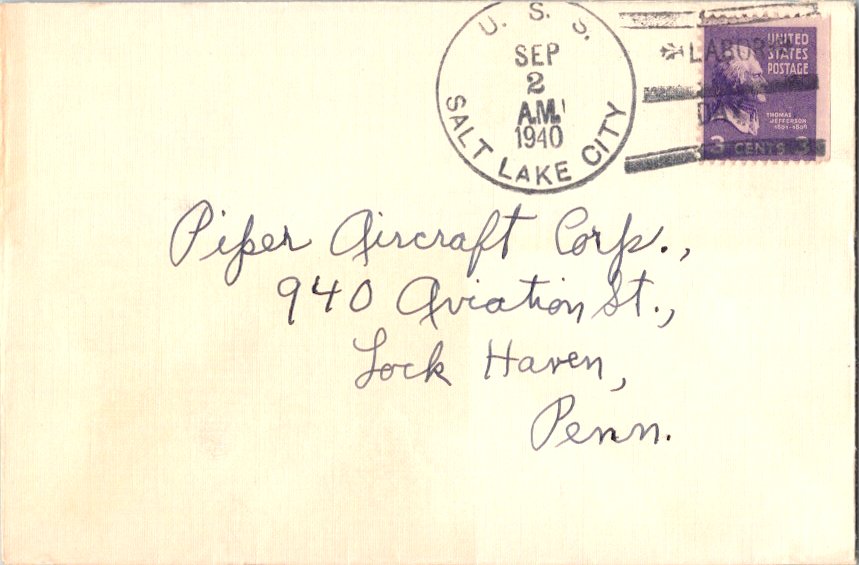 U. S. S.
SEP
2
A.M.
1940
SALT LAKE CITY
LABOR
UNITED
STATES
POSTAGE
THOMAS
JEFFERSON
3 CENTS 3
Piper Aircraft Corp.,
940 Aviation St.,
Lock Haven,
Penn.